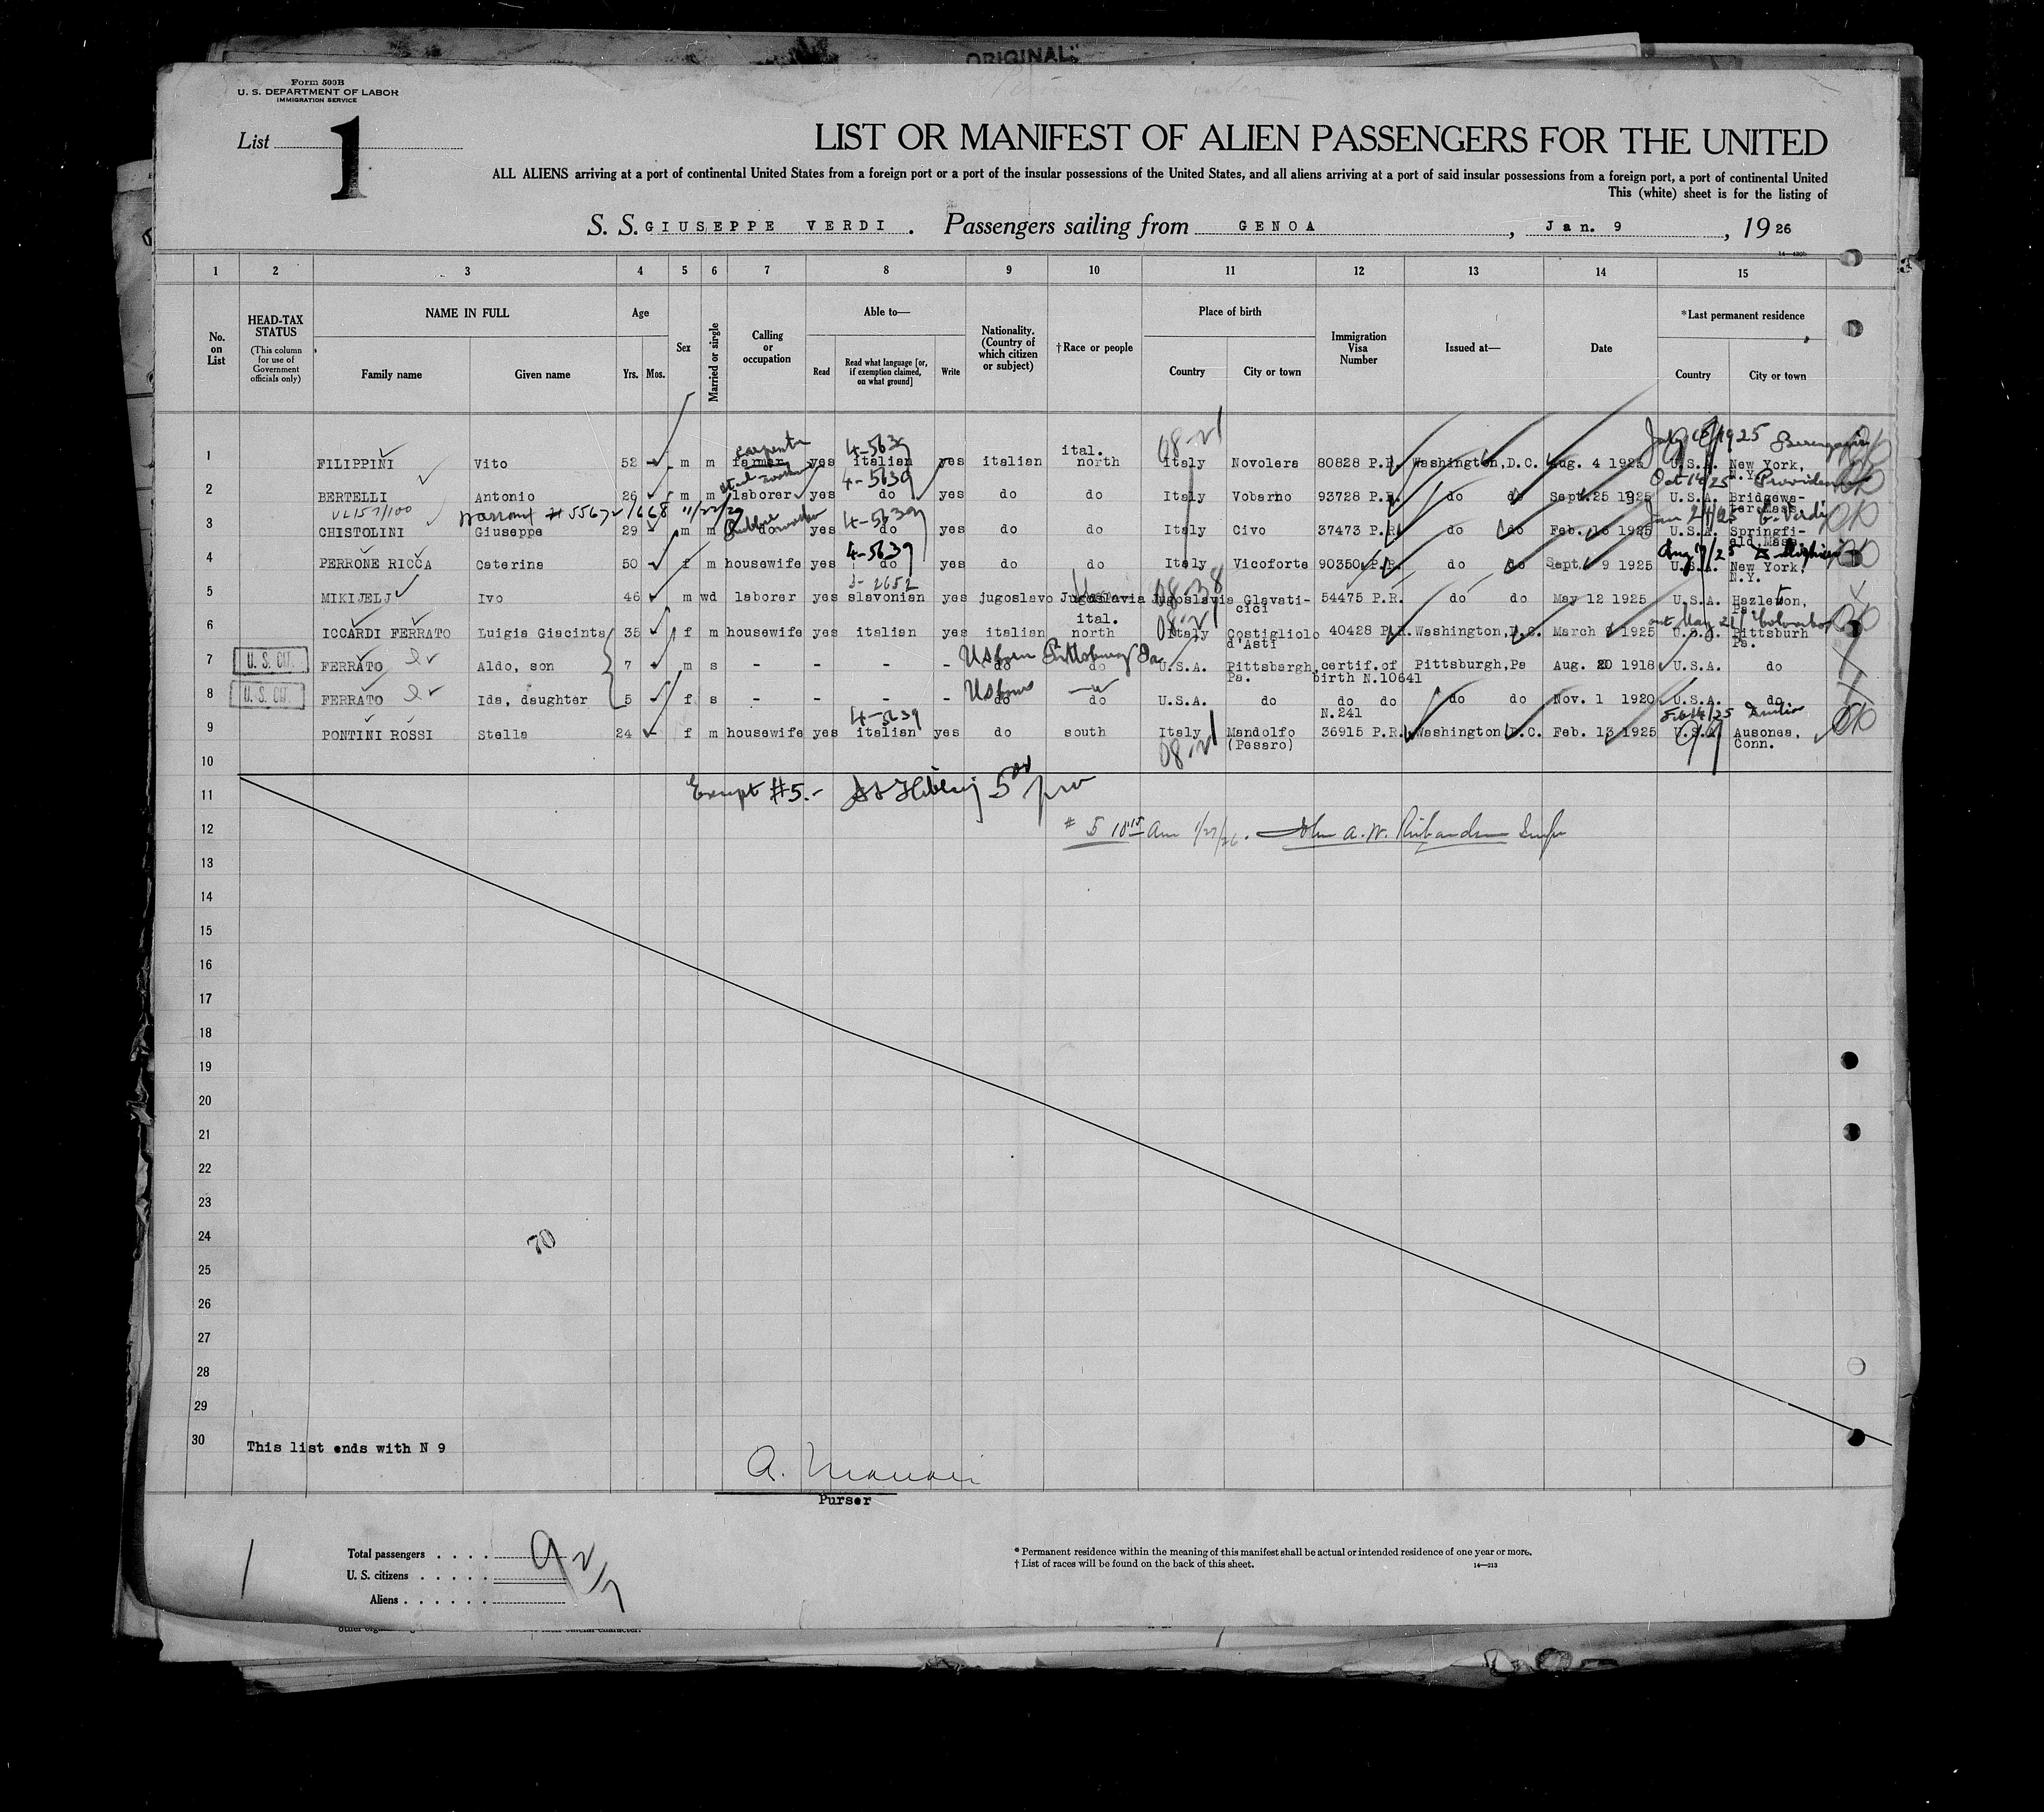 ORIGINAL
Form 500B
U. S. DEPARTMENT OF LABOR
IMMIGRATION SERVICE
List 1
LIST OR MANIFEST OF ALIEN PASSENGERS FOR THE UNITED
ALL ALIENS arriving at a port of continental United States from a foreign port or a port of the insular possessions of the United States, and all aliens arriving at a port of said insular possessions from a foreign port, a port of continental United
This (white) sheet is for the listing of
S. S. GIUSEPPE VERDI. Passengers sailing from GENOA, Jan. 9, 1926
1 2 3 4 5 6 7 8 9 10 11 12 13 14 15
No. on List
HEAD-TAX STATUS (This column for use of Government officials only)
NAME IN FULL
Family name Given name
Age
Yrs. Mos.
Sex
Married or single
Calling or occupation
Able to—
Read Read what language [or, if exemption claimed, on what ground] Write
Nationality. (Country of which citizen or subject)
†Race or people
Place of birth
Country City or town
Immigration Visa Number
Issued at—
Date
*Last permanent residence
Country City or town
carpenter 4-5639 ital. 08-21 July 1925 Berengaria
1 FILIPPINI Vito 52 m m farmer yes italian yes italian north Italy Novolera 80828 P.R. Washington,D.C. Aug. 4 1925 U.S.A. New York, N.Y.
4-5639 Oct 14/25 Providence
2 BERTELLI Antonio 26 m m laborer yes do yes do do Italy Vobarno 93728 P.R. do do Sept.25 1925 U.S.A. Bridgewater Mass.
Warrant # 55672/668 11/22/29 Rubber worker 4-5639 Jan 24/25 G. Verdi
3 CHISTOLINI Giuseppe 29 m m do yes do yes do do Italy Civo 37473 P.R. do do Feb. 16 1925 U.S.A. Springfield Mass.
4-5639
4 PERRONE RICCA Caterina 50 f m housewife yes do yes do do Italy Vicoforte 90350 P.R. do do Sept. 9 1925 U.S.A. New York, N.Y.
3-2652 08-38
5 MIKIJELJ Ivo 46 m wd laborer yes slavonian yes jugoslavo Jugoslavia Jugoslavia Glavaticici 54475 P.R. do do May 12 1925 U.S.A. Hazleton, Pa.
ital. 08-21
6 ICCARDI FERRATO Luigia Giacinta 35 f m housewife yes italian yes italian north Italy Costigliolo d'Asti 40428 P.R. Washington,D.C. March 1925 U.S.A. Pittsburh Pa.
US born Pittsburg Pa
7 U. S. CIT. FERRATO Aldo, son 7 m s - - - - do do U.S.A. Pittsbargh, Pa. certif.of birth N.10641 Pittsburgh,Pa Aug. 20 1918 U.S.A. do
US born
8 U. S. CIT. FERRATO Ida, daughter 5 f s - - - - do do U.S.A. do do do N.241 do do Nov. 1 1920 U.S.A. do
4-5639 Feb 14/25 Duilio
9 PONTINI ROSSI Stella 24 f m housewife yes italian yes do south Italy Mandolfo (Pesaro) 36915 P.R. Washington D.C. Feb. 13 1925 U.S.A. Ausonea, Conn.
08-21
10
11 Except #5.-
12 # 5 10:15 Am 1/27/26. John A. W. Richardson Insp
13
14
15
16
17
18
19
20
21
22
23
24
70
25
26
27
28
29
30 This list ends with N 9
Purser
1
Total passengers . . . . 9
U. S. citizens . . . . . 2
Aliens . . . . . . 7
* Permanent residence within the meaning of this manifest shall be actual or intended residence of one year or more.
† List of races will be found on the back of this sheet.
14—213